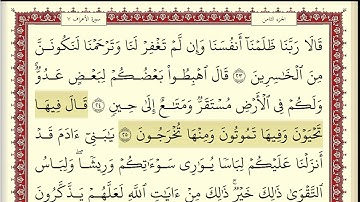 الجزء الثامن
سورة الأعراف ٧
قَالَا رَبَّنَا ظَلَمْنَآ أَنفُسَنَا وَإِن لَّمْ تَغْفِرْ لَنَا وَتَرْحَمْنَا لَنَكُونَنَّ
مِنَ ٱلْخَٰسِرِينَ ٢٣ قَالَ ٱهْبِطُوا۟ بَعْضُكُمْ لِبَعْضٍ عَدُوٌّ
وَلَكُمْ فِى ٱلْأَرْضِ مُسْتَقَرٌّ وَمَتَٰعٌ إِلَىٰ حِينٍ ٢٤ قَالَ فِيهَا
تَحْيَوْنَ وَفِيهَا تَمُوتُونَ وَمِنْهَا تُخْرَجُونَ ٢٥ يَٰبَنِىٓ ءَادَمَ قَدْ
أَنزَلْنَا عَلَيْكُمْ لِبَاسًا يُوَٰرِى سَوْءَٰتِكُمْ وَرِيشًا ۖ وَلِبَاسُ
ٱلتَّقْوَىٰ ذَٰلِكَ خَيْرٌ ۚ ذَٰلِكَ مِنْ ءَايَٰتِ ٱللَّهِ لَعَلَّهُمْ يَذَّكَّرُونَ